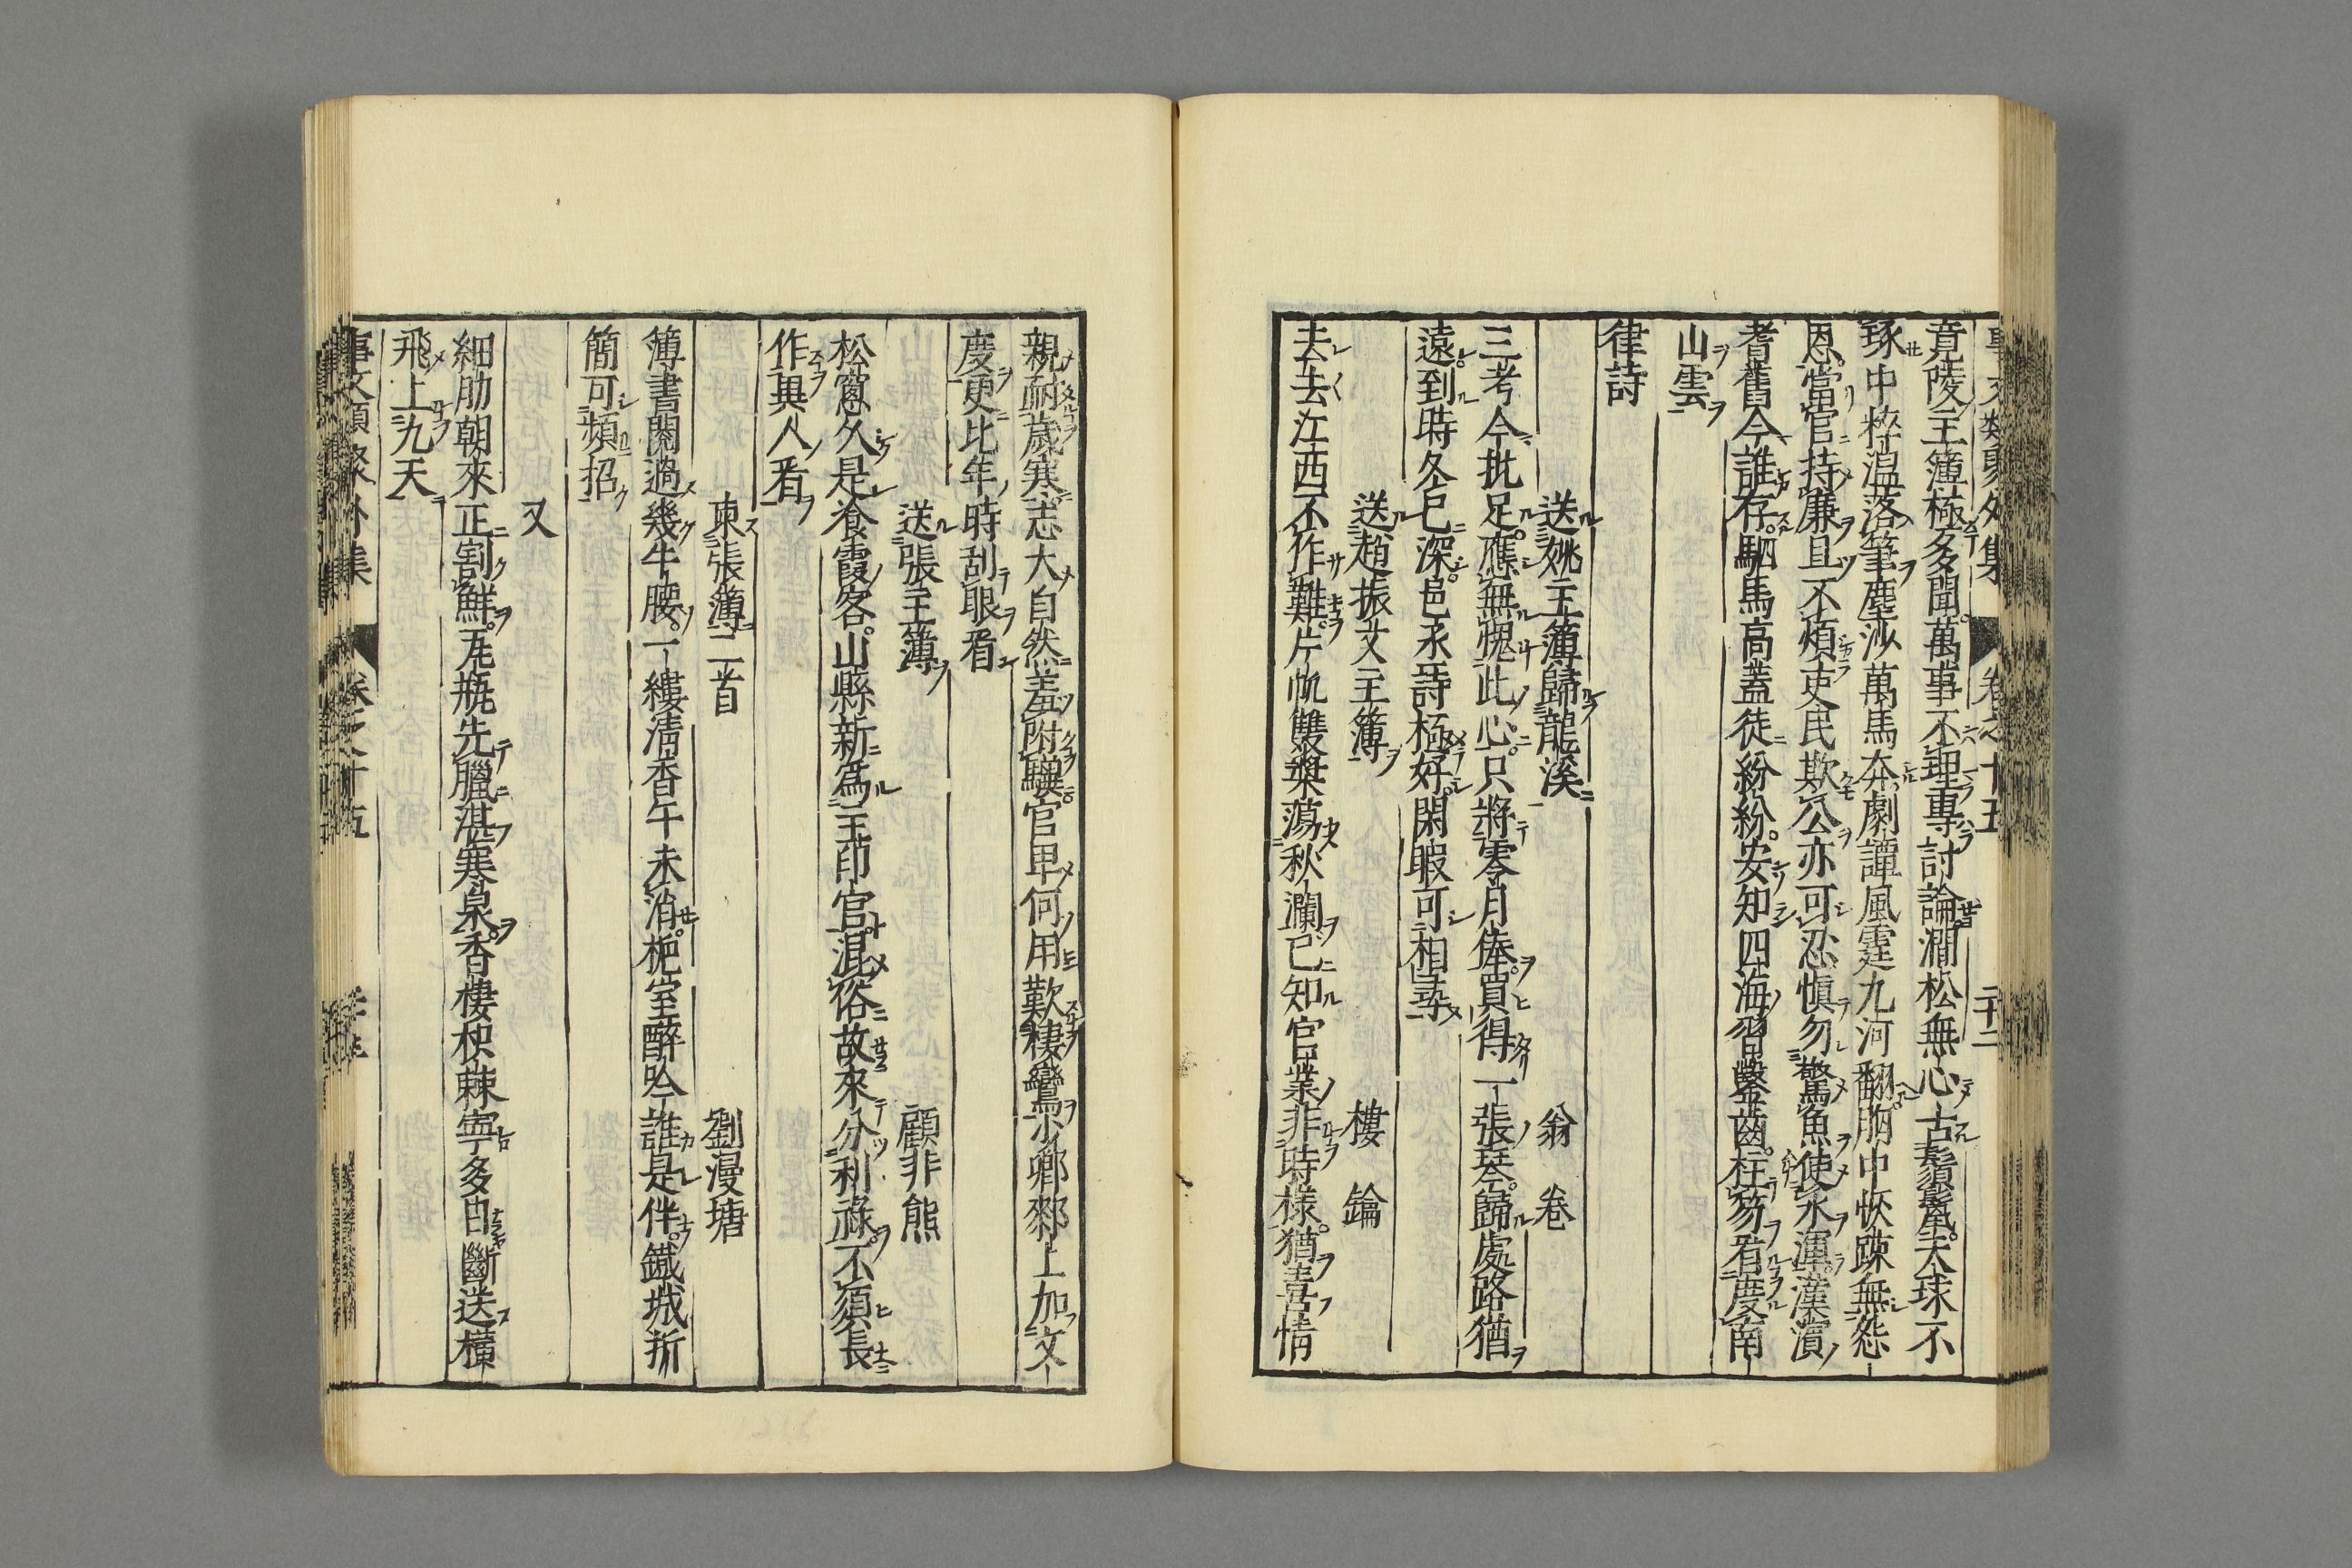 竟陵主簿極多聞萬事不理專討論澗松無心古鬚鬣天球不
琢中粹温落筆塵沙萬馬奔劇譚風霆九河翻胷中恢疎無怨
恩當官持廉且不煩吏民欺公亦可忍愼勿驚魚使水渾漢濱
耆舊今誰存駟馬高蓋徒紛紛安知四海習鑿齒柱笏看度南
山雲
律詩
送姚主簿歸龍溪 翁卷
三考今批足應無愧此心只將零月俸買得一張琴歸處路猶
遠到時冬已深邑丞詩極好閑暇可相尋
送趙振文主簿 樓鑰
去去江西不作難片帆雙槳蕩秋瀾已知官業非時樣猶喜情
親耐歲寒志大自然羞附驥官卑何用歎棲鸞小鄉鄰上加文
慶更比年時刮眼看
送張主簿 顧非熊
松窻久是飡霞客山縣新爲主印官混俗故來分利祿不須長
作異人看
柬張簿二首 劉漫塘
簿書閱過幾牛腰一縷清香午未消栀室醉吟誰是伴鐵城折
簡可頻招
又
細肋朝來正割鮮瓦瓶先臘湛寒泉香棲枳棘寧多日斷送橫
飛上九天
事文類聚外集 卷之十五